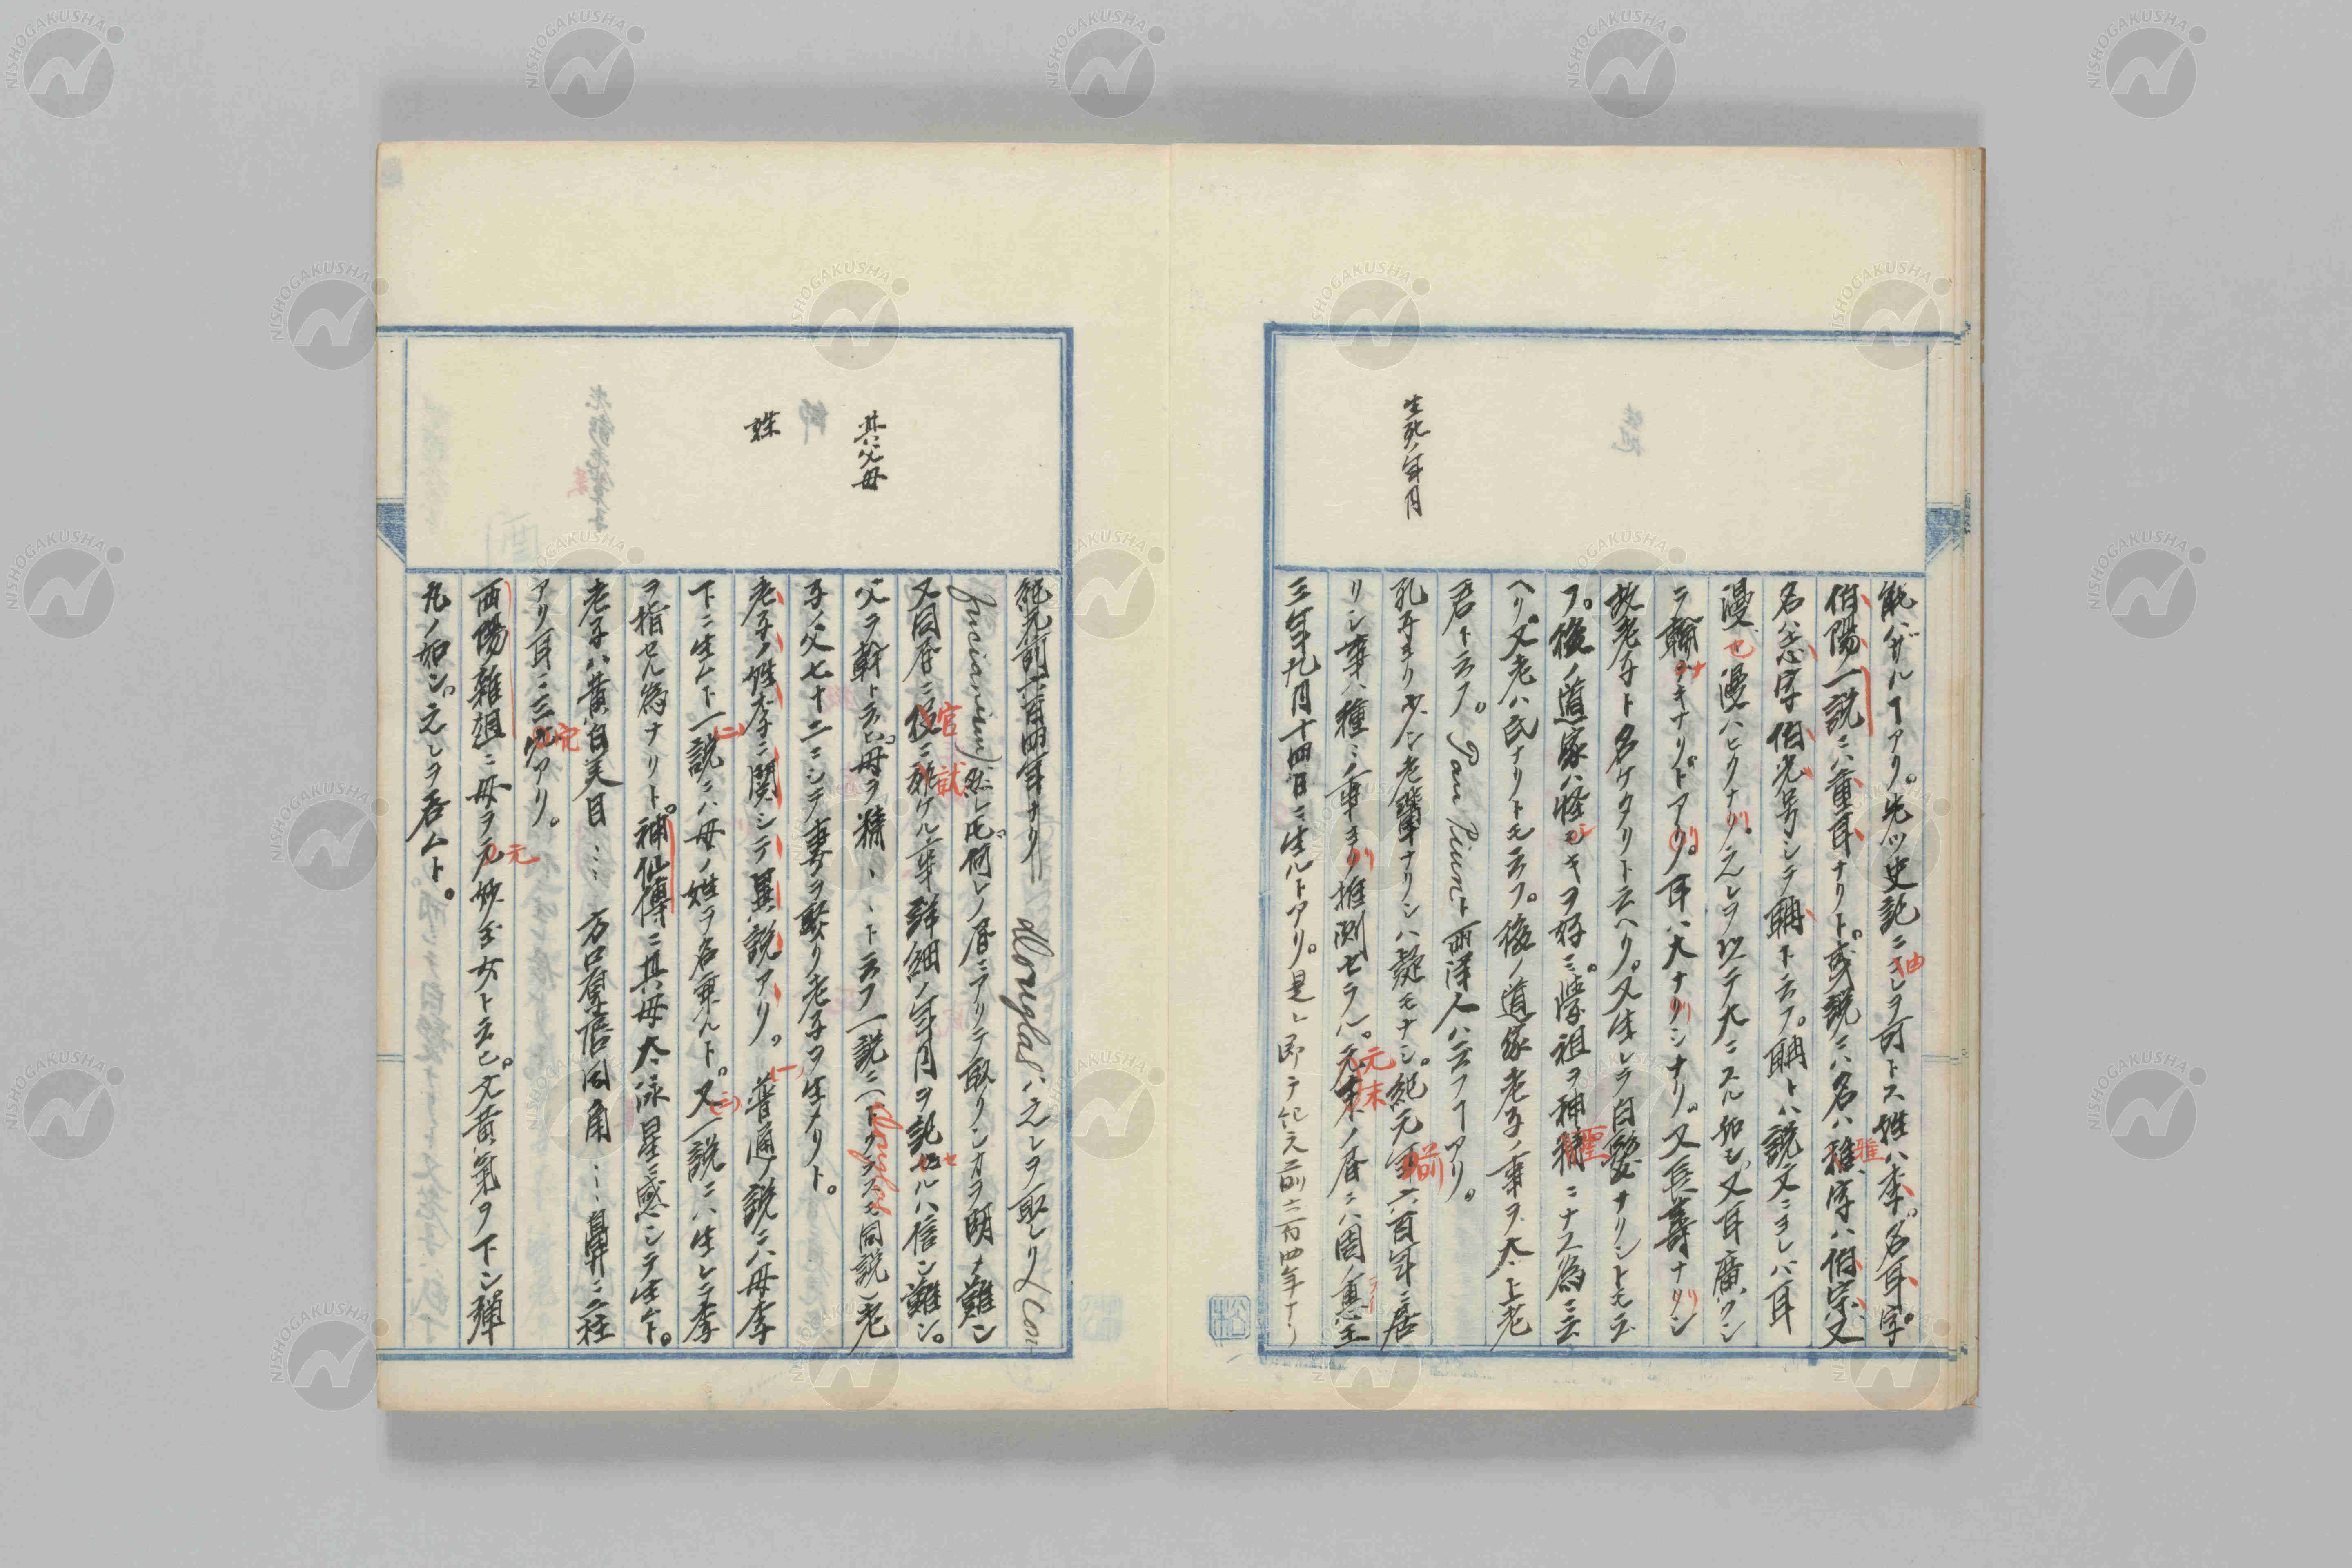 能ハザルヿアリ。先ツ史記ニコレヲ可トス姓ハ李。名耳字。
伯陽一説ニハ重耳ナリト。或説ニハ名ハ雅、字ハ伯宗又
名ハ志字伯光号シテ耼ト云フ。耼トハ説文ニヨレハ耳
漫也漫ハヒクナリ。之レヲ以テ大ニスル如シ又耳廣クシ
ラ輪ナキナリトアリ。耳ハ大ナリシナリ。又長壽ナリシ
故老子ト名ケタリト云ヘリ。又生レテ白髪ナリシトモ云
フ。後ノ道家ハ怪シキヲ好ミ。学祖ヲ神聖ニナス為ニ云
ヘリ。又老ハ氏ナリトモ云フ。後ノ道家老子ノ事ヲ太上老
君ト云フ。
孔子ヨリ少シ老輩ナリシハ疑モナシ。紀元前六百年ニ居
リシ事ハ種ミノ事ヨリ推測セラル。元末ノ暦ニハ周ノ惠王
三年九月十四日ニ生ルトアリ。是レ即チ紀元前六百四年ナリ
生死ノ年月
紀元前六百四年ナリ Douglasハ之レヲ取レリ(Con
fucianism)然レ𪜈何レノ暦ニアリテ取リシカヲ明ナ難シ
又同暦ニ官ニ就ケル事詳細ノ年月ヲ記セルハ信シ難シ。
父ヲ乾ト云ヒ。母ヲ精、、ト云フ一説ニ(ドクラスモ同説)老
子ノ父七十二ニシテ妻ヲ娶リ老子ヲ生メリト。
老子ノ姓李ニ関シテ異説アリ。(一)普通ノ説ニハ母李
下ニ生ムト(二)一説ニハ母ノ姓ヲ名乗ルト。又(三)一説ニハ生レテ李
ヲ指セル為ナリト。神仙傳ニ其母大流星ニ感シテ生ムト。
老子ハ黄白美目… 方口厚唇日角… 鼻ニ三柱
アリ耳ニ三穴アリ。
酉陽雑俎ニ母ヲ元妙玉女ト云ヒ。又黄気ヲ下シ弾
丸ノ如シ。之レヲ呑ムト。
其父母
姓